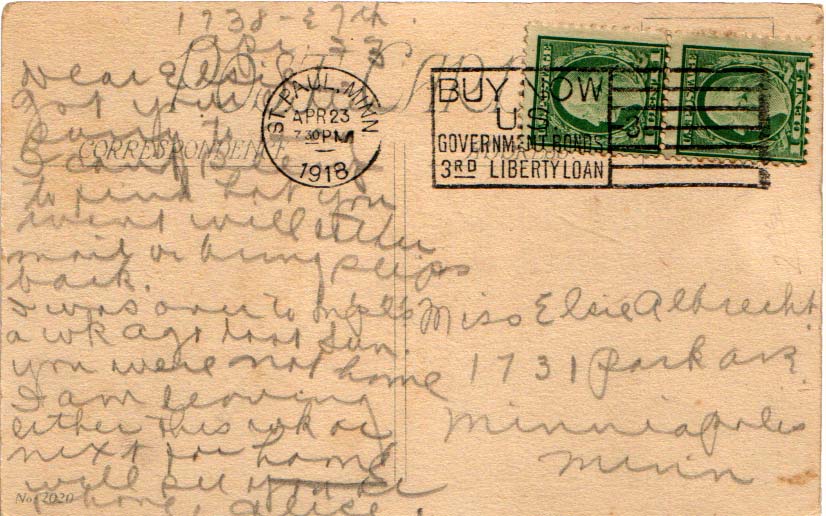 1738-E 7th.
Apr. 23
POST CARD
Dear Elsie
Got your
Sorry to
CORRESPONDENCE
I can't
to send but you
went will either
mail or bring slips
back.
I was over to Mpls
a wk ago last Sun.
you were not home
I am leaving
either this wk or
next for home
will see you or
phone, Alice.
No. 2020
ST. PAUL, MINN
APR 23
7 30 PM
1918
BUY NOW
U.S.
GOVERNMENT BONDS
3RD LIBERTY LOAN
1 CENT 1
1 CENT 1
Miss Elsie Albrecht.
1731 Park av.
Minneapolis
Minn